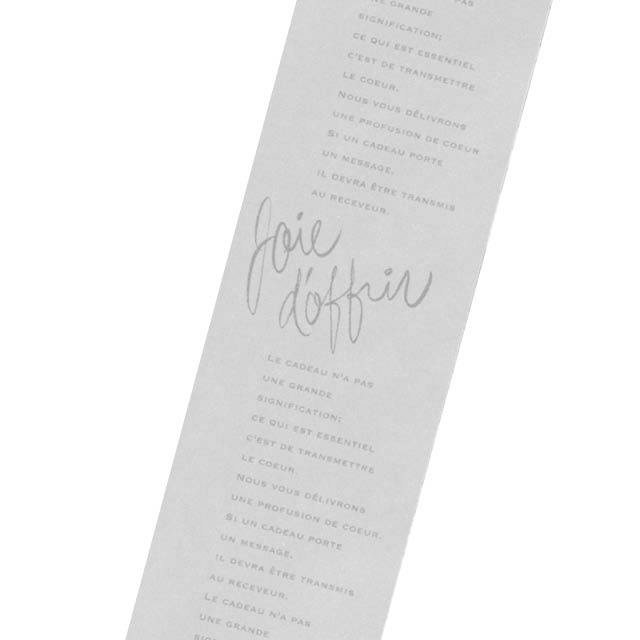 UNE GRANDE
SIGNIFICATION;
CE QUI EST ESSENTIEL
C'EST DE TRANSMETTRE
LE COEUR.
NOUS VOUS DÉLIVRONS
UNE PROFUSION DE COEUR
SI UN CADEAU PORTE
UN MESSAGE,
IL DEVRA ÊTRE TRANSMIS
AU RECEVEUR.
Joie
d'offrir
LE CADEAU N'A PAS
UNE GRANDE
SIGNIFICATION;
CE QUI EST ESSENTIEL
C'EST DE TRANSMETTRE
LE COEUR.
NOUS VOUS DÉLIVRONS
UNE PROFUSION DE COEUR.
SI UN CADEAU PORTE
UN MESSAGE,
IL DEVRA ÊTRE TRANSMIS
AU RECEVEUR.
LE CADEAU N'A PAS
UNE GRANDE